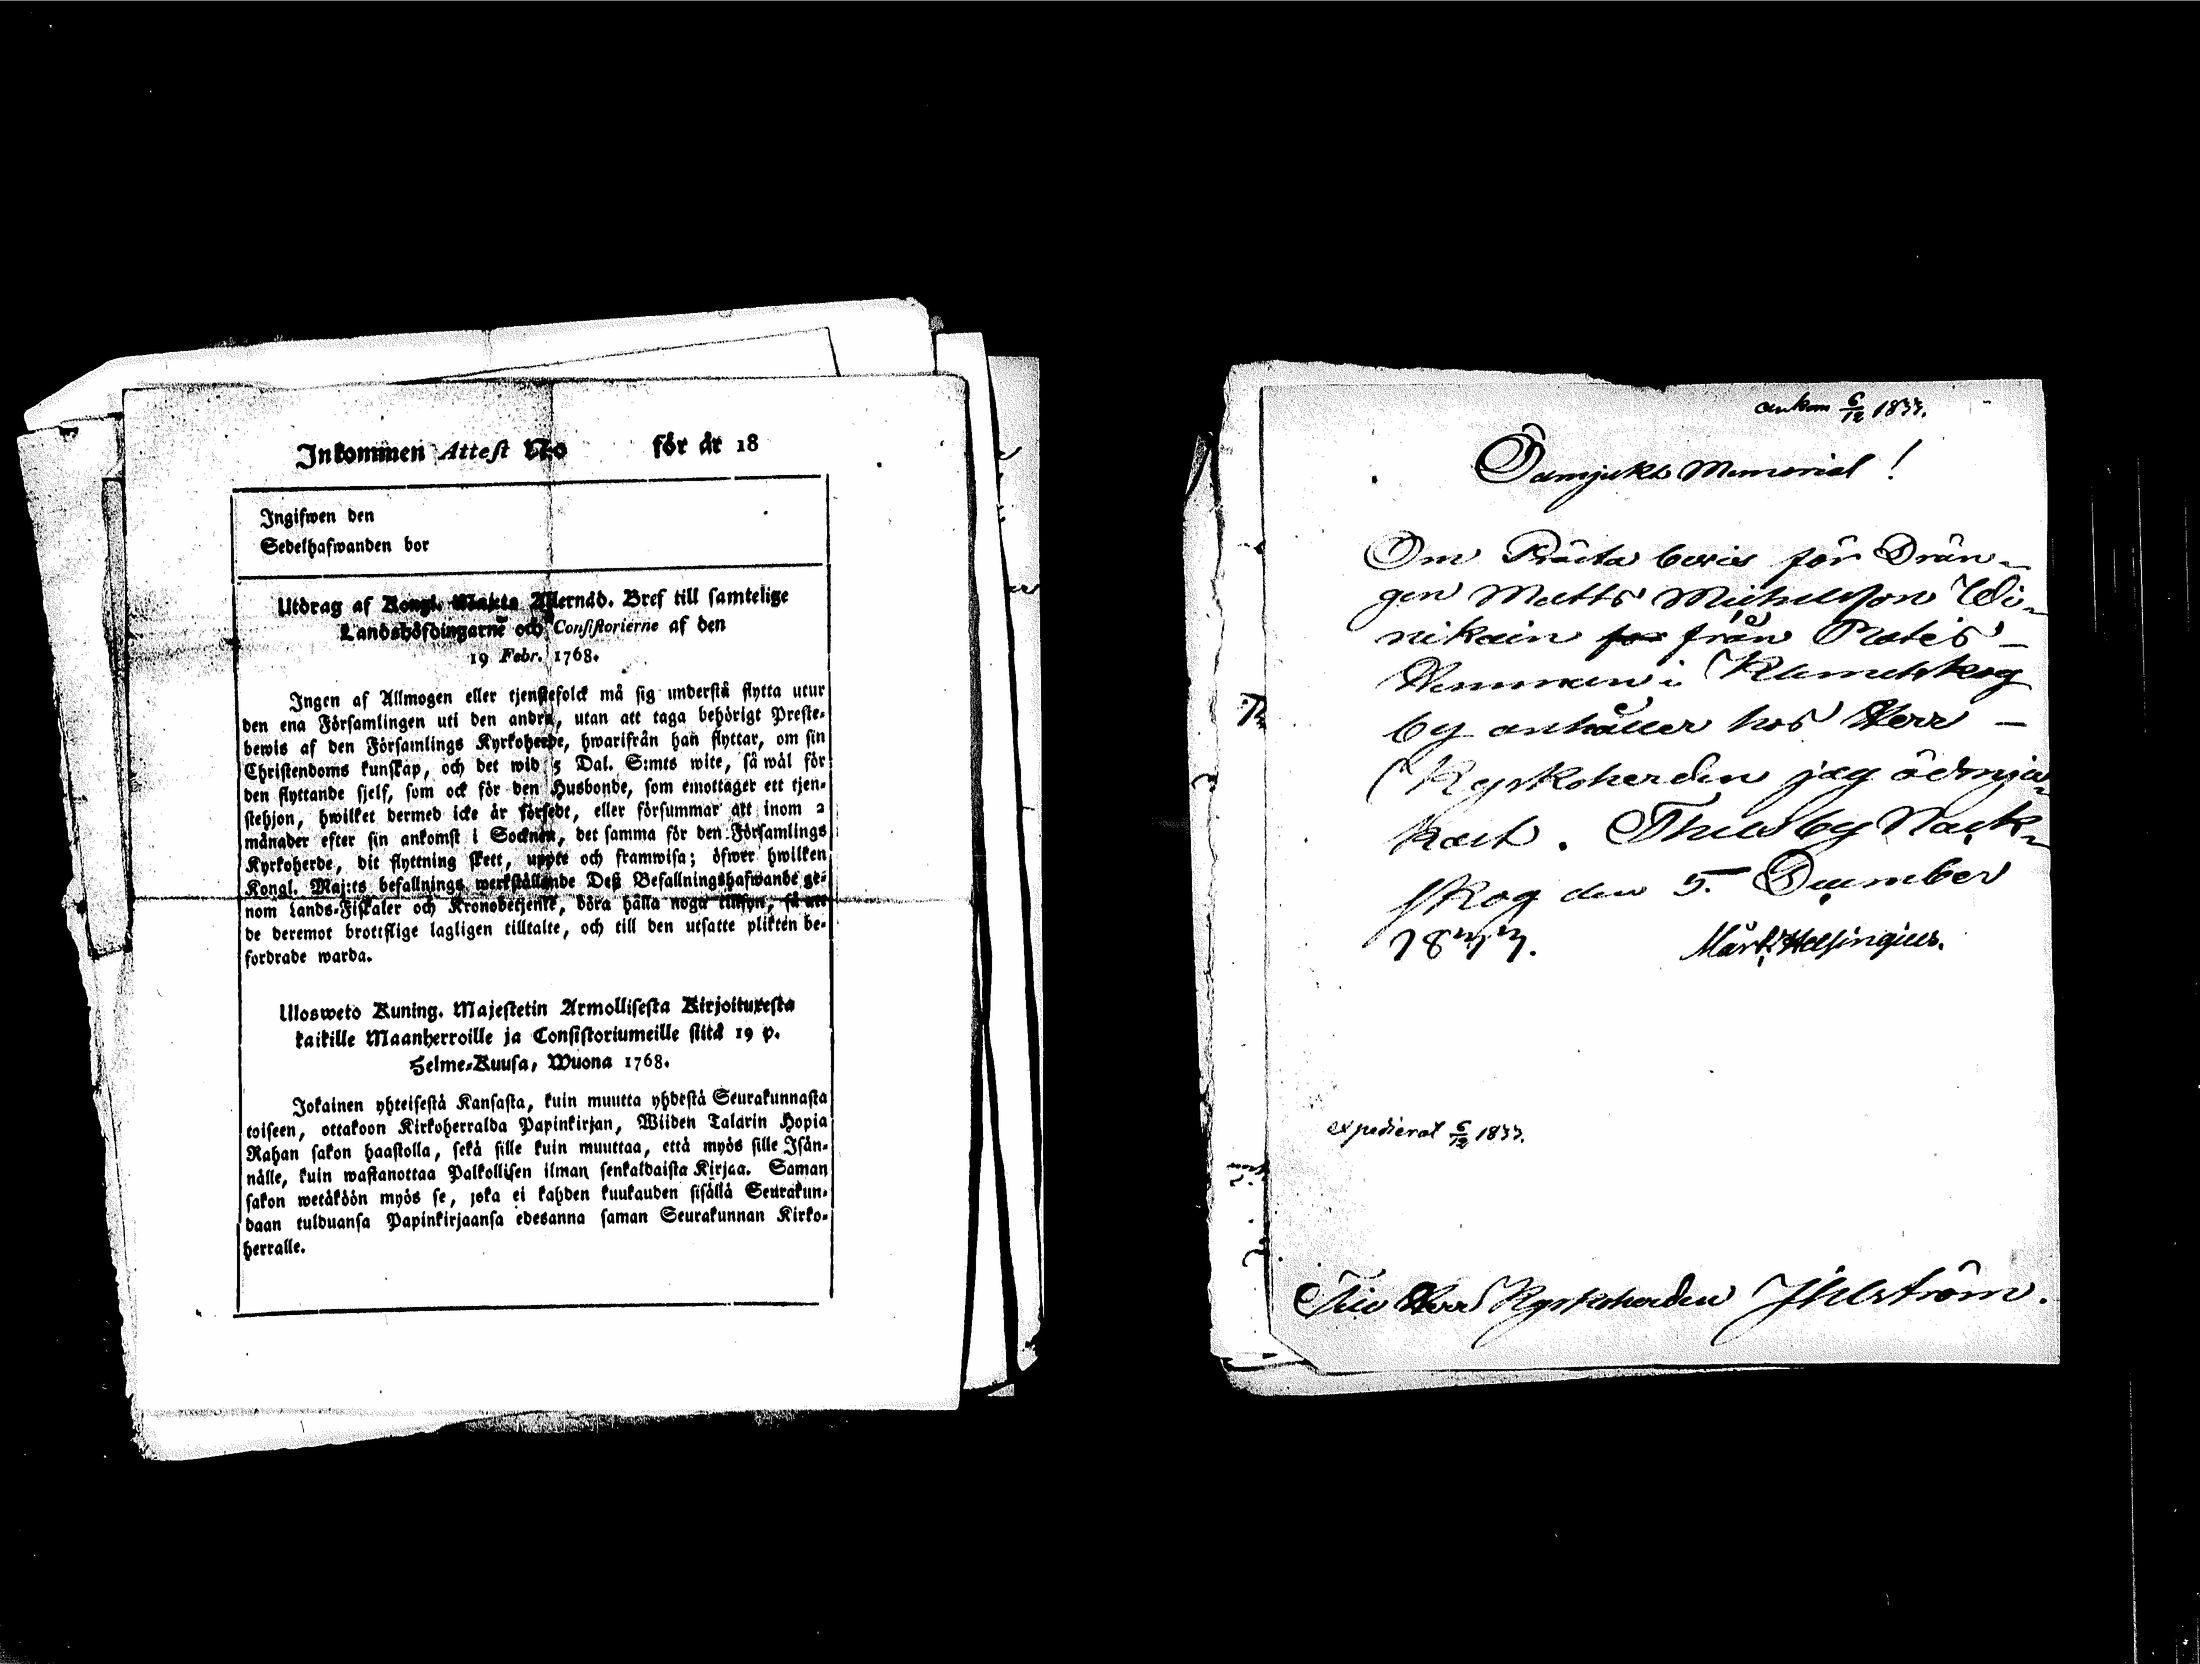 Inkommen Attest No för år 18
Ingifwen den
Sedelhafwanden bor
Utdrag af Kongl. Maj:ts Allernåd. Bref till samtelige
Landshöfdingarne och Consistorierne af den
19 Febr. 1768.
Ingen af Allmogen eller tjenstefolck må sig understå flytta utur
den ena Församlingen uti den andra, utan att taga behörigt Preste-
bewis af den Församlings Kyrkoherde, hwarifrån han flyttar, om sin
Christendoms kunskap, och det wid 5 Dal. S:mts wite, så wäl för
den flyttande sjelf, som ock för den Husbonde, som emottager ett tjen-
stehjon, hwilket dermed icke är försedt, eller försummar att inom 2
månader efter sin ankomst i Socknen, det samma för den Församlings
Kyrkoherde, dit flyttning skett, uppte och framwisa; öfwer hwilken
Kongl. Maj:ts befallnings werkställande Deß Befallningshafwande ge-
nom Lands-Fiskaler och Kronobetjente, böra hålla noga tillsyn, så att
de deremot brottslige lagligen tilltalte, och till den utsatte plikten be-
fordrade warda.
Ulosweto Kuning. Majestetin Armollisesta Kirjoituxesta
kaikille Maanherroille ja Consistoriumeille siitä 19 p.
Helme-Kuusa, Wuona 1768.
Jokainen yhteisestä Kansasta, kuin muutta yhdestä Seurakunnasta
toiseen, ottakoon Kirkoherralda Papinkirjan, Wiiden Talarin Hopia
Rahan sakon haastolla, sekä sille kuin muuttaa, että myös sille Isän-
nälle, kuin wastanottaa Palkollisen ilman senkaldaista Kirjaa. Saman
sakon wetäköön myös se, joka ei kahden kuukauden sisällä Seurakun-
daan tulduansa Papinkirjaansa edesanna saman Seurakunnan Kirko-
herralle.
ankom 6/12 1877.
Ödmjukt Memorial!
Om Prästa bevis för Drän-
gen Matts Michelsson Wi-
nikain från
Hemman i Klamelskog
by anhåller hos Herr
Kyrkoherden jag ödmju-
kast. Thusby Nack-
skog den 5. December
1877. Mårt: Helsingius.
expedierat 6/12 1877.
Till Herr Kyrkoherden Ihlström.